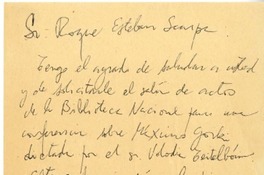 Sr. Roque Esteban Scarpa
Tengo el agrado de saludar a usted
y de solicitarle el salón de actos
de la Biblioteca Nacional para una
conferencia sobre Máximo Gorki
dictada por el sr. Volodia Teitelboim